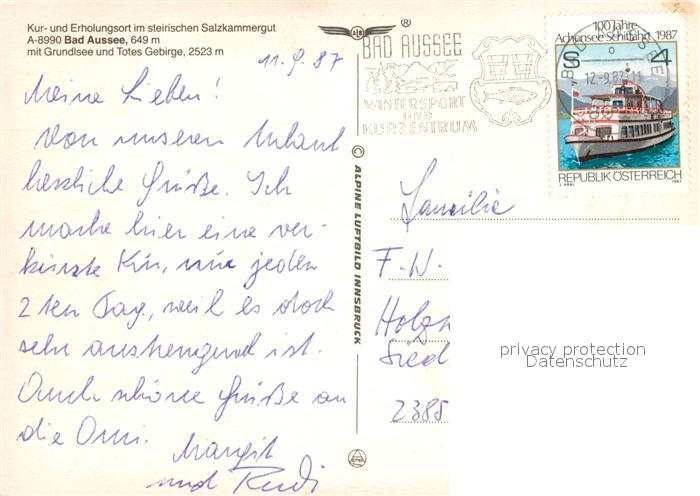 Kur- und Erholungsort im steirischen Salzkammergut
A-8990 Bad Aussee, 649 m
mit Grundlsee und Totes Gebirge, 2523 m
11.9.87
Meine Lieben!
Von unseren Urlaub
herzliche Grüße. Ich
mache hier eine ver-
kürzte Kur, nur jeden
2ten Tag, weil es doch
sehr anstrengend ist.
Auch schöne Grüße an
die Omi.
Margit
und Rudi
© ALPINE LUFTBILD INNSBRUCK
®
BAD AUSSEE
WINTERSPORT
UND
KURZENTRUM
100 Jahre
Achensee Schiffahrt 1987
S 4
12.-9.87-11
REPUBLIK ÖSTERREICH
J. KRAL
1987
Familie
F. W.
Holz
Sied
2385
privacy protection
Datenschutz